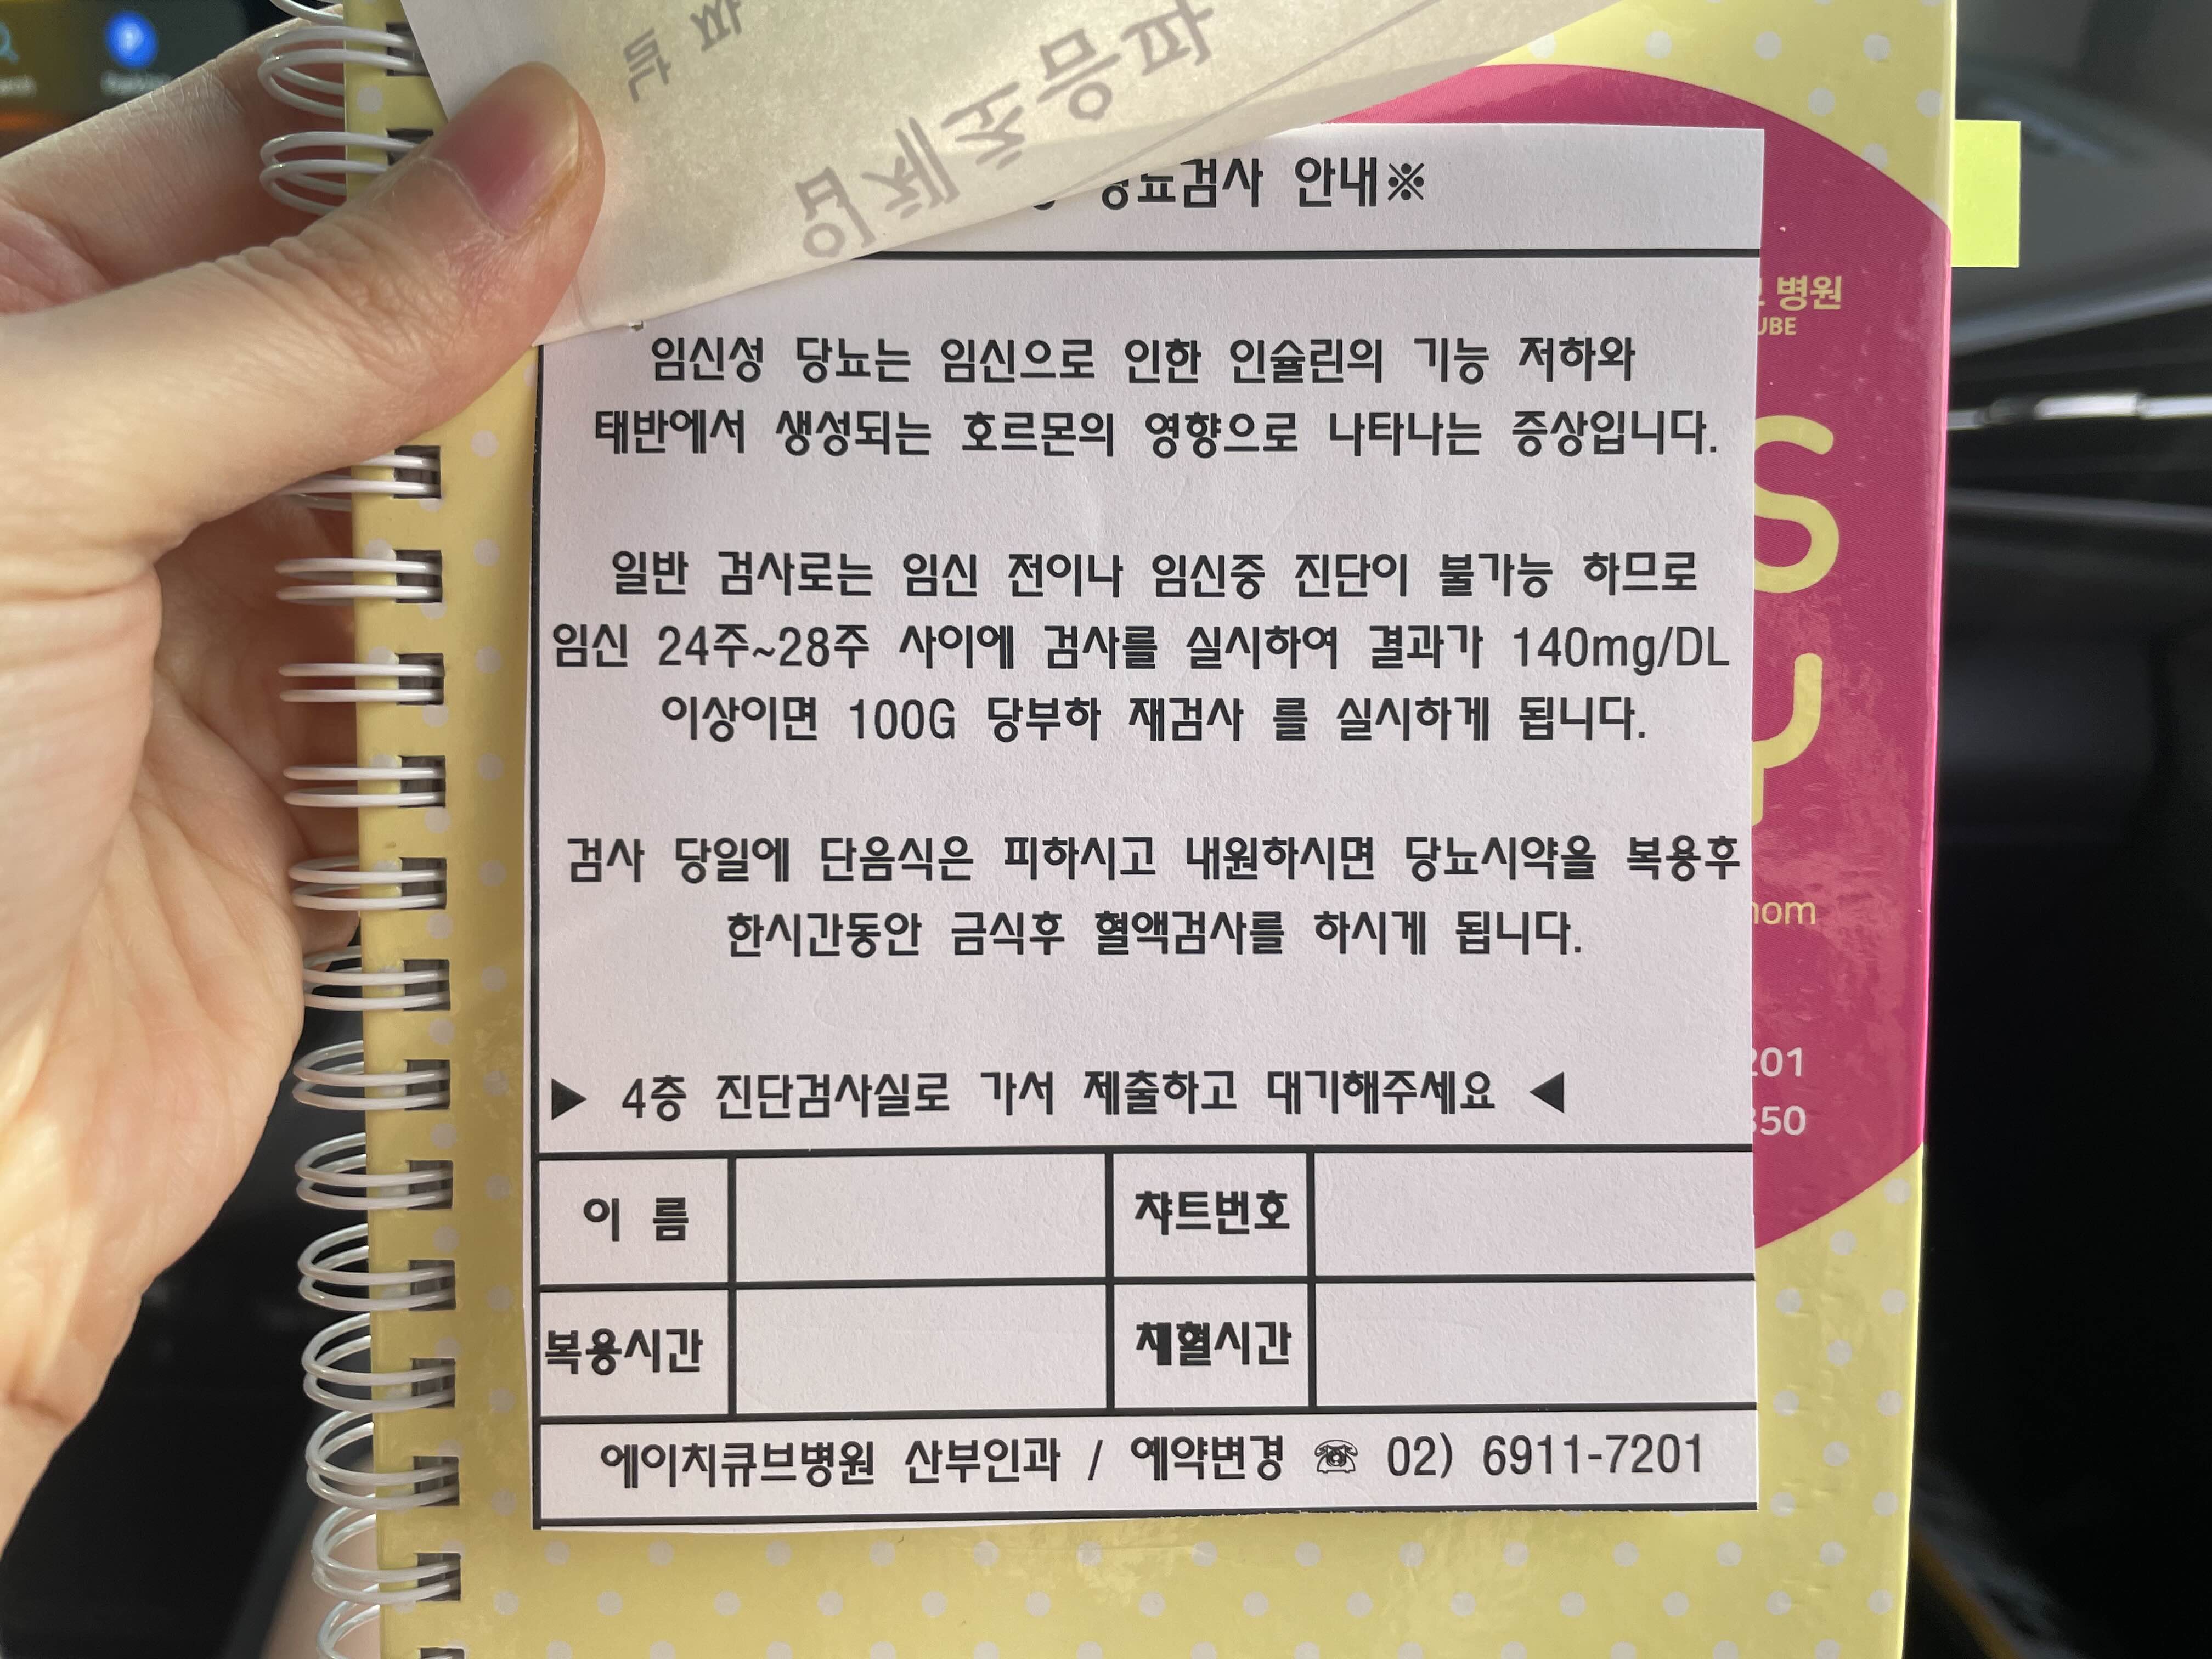 당뇨검사 안내※
병원
임신성 당뇨는 임신으로 인한 인슐린의 기능 저하와
태반에서 생성되는 호르몬의 영향으로 나타나는 증상입니다.
일반 검사로는 임신 전이나 임신중 진단이 불가능 하므로
임신 24주~28주 사이에 검사를 실시하여 결과가 140mg/DL
이상이면 100G 당부하 재검사 를 실시하게 됩니다.
검사 당일에 단음식은 피하시고 내원하시면 당뇨시약을 복용후
한시간동안 금식후 혈액검사를 하시게 됩니다.
▶ 4층 진단검사실로 가서 제출하고 대기해주세요 ◀
이 름 챠트번호
복용시간 채혈시간
에이치큐브병원 산부인과 / 예약변경 ☏ 02) 6911-7201